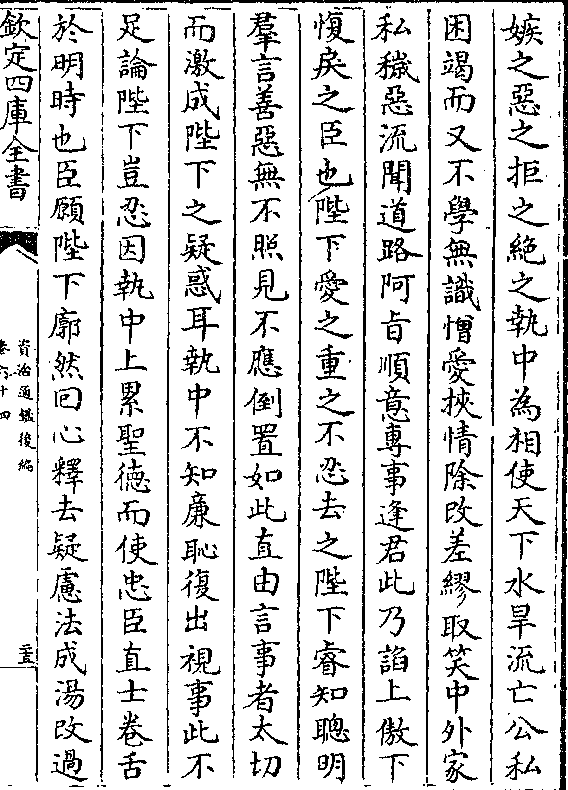 嫉之惡之拒之絶之執中為相使天下水旱流亡公私
困竭而又不學無識憎愛挾情除改差繆取笑中外家
私穢惡流聞道路阿㫖順意專事逢君此乃謟上傲下
愎戾之臣也陛下愛之重之不忍去之陛下睿知聰明
羣言善惡無不照見不應倒置如此直由言事者太切
而激成陛下之疑惑耳執中不知廉恥復出視事此不
足論陛下豈忍因執中上累聖德而使忠臣直士卷舌
於明時也臣願陛下廓然回心釋去疑慮法成湯改過
欽定四庫全書
資治通鑑後編
卷六十四
二十五